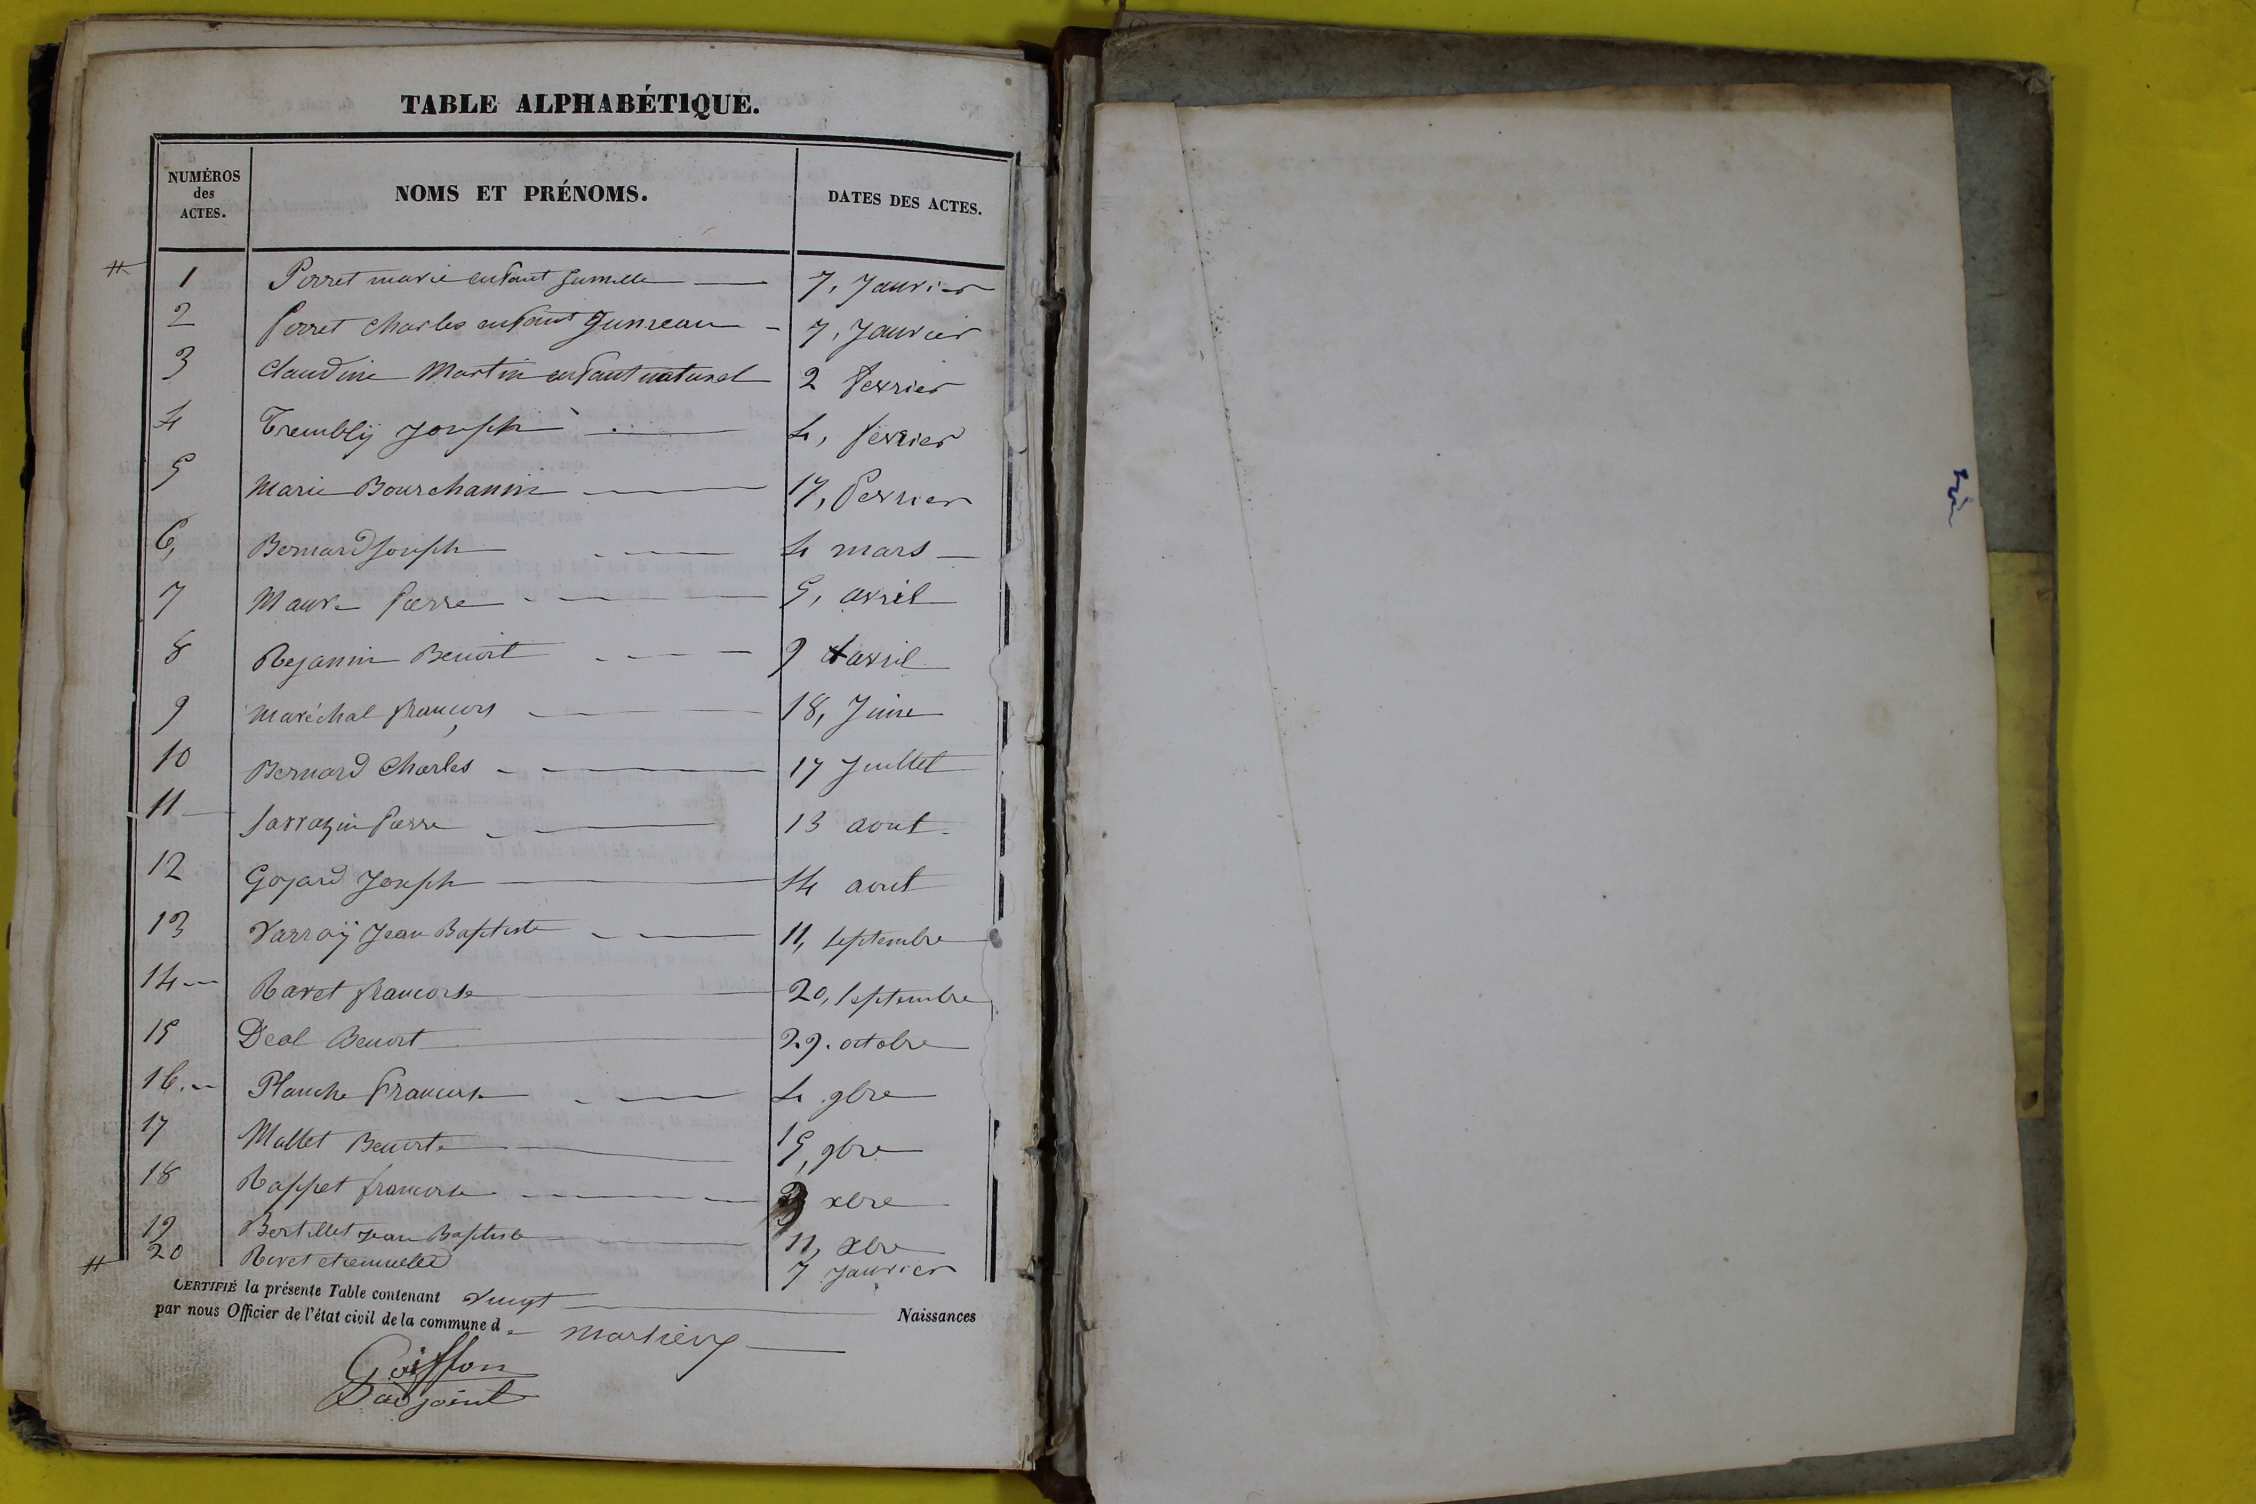 TABLE ALPHABÉTIQUE.
NUMÉROS des ACTES. NOMS ET PRÉNOMS. DATES DES ACTES.
1 Perret marie enfant Jumelle 7, Janvier
2 Perret Charles enfant Jumeau 7, Janvier
3 Claudine Martin enfant naturel 2 fevrier
4 Trembly Joseph 4, fevrier
5 Marie Bourchanin 17, fevrier
6, Bernard Joseph 4 mars
7 Maure Pierre 5, avril
8 Rejanin Benoit 9 avril
9 Maréchal françois 18, Juin
10 Bernard Charles 17 Juillet
11 Sarrazin Pierre 13 aout
12 Goyard Joseph 14 aout
13 Varroÿ Jean Baptiste 11, Septembre
14 Ravet francoise 20, Septembre
15 Déal Benoit 29. octobre
16. Planche francois 4 9bre
17 Mallet Benoite 15, 9bre
18 Rappet francoise xbre
19 Bertillet Jean Baptiste 11, xbre
20 Rivet 7 Janvier
CERTIFIÉ la présente Table contenant Vingt Naissances
par nous Officier de l'état civil de la commune de
Goiffon
D adjoint